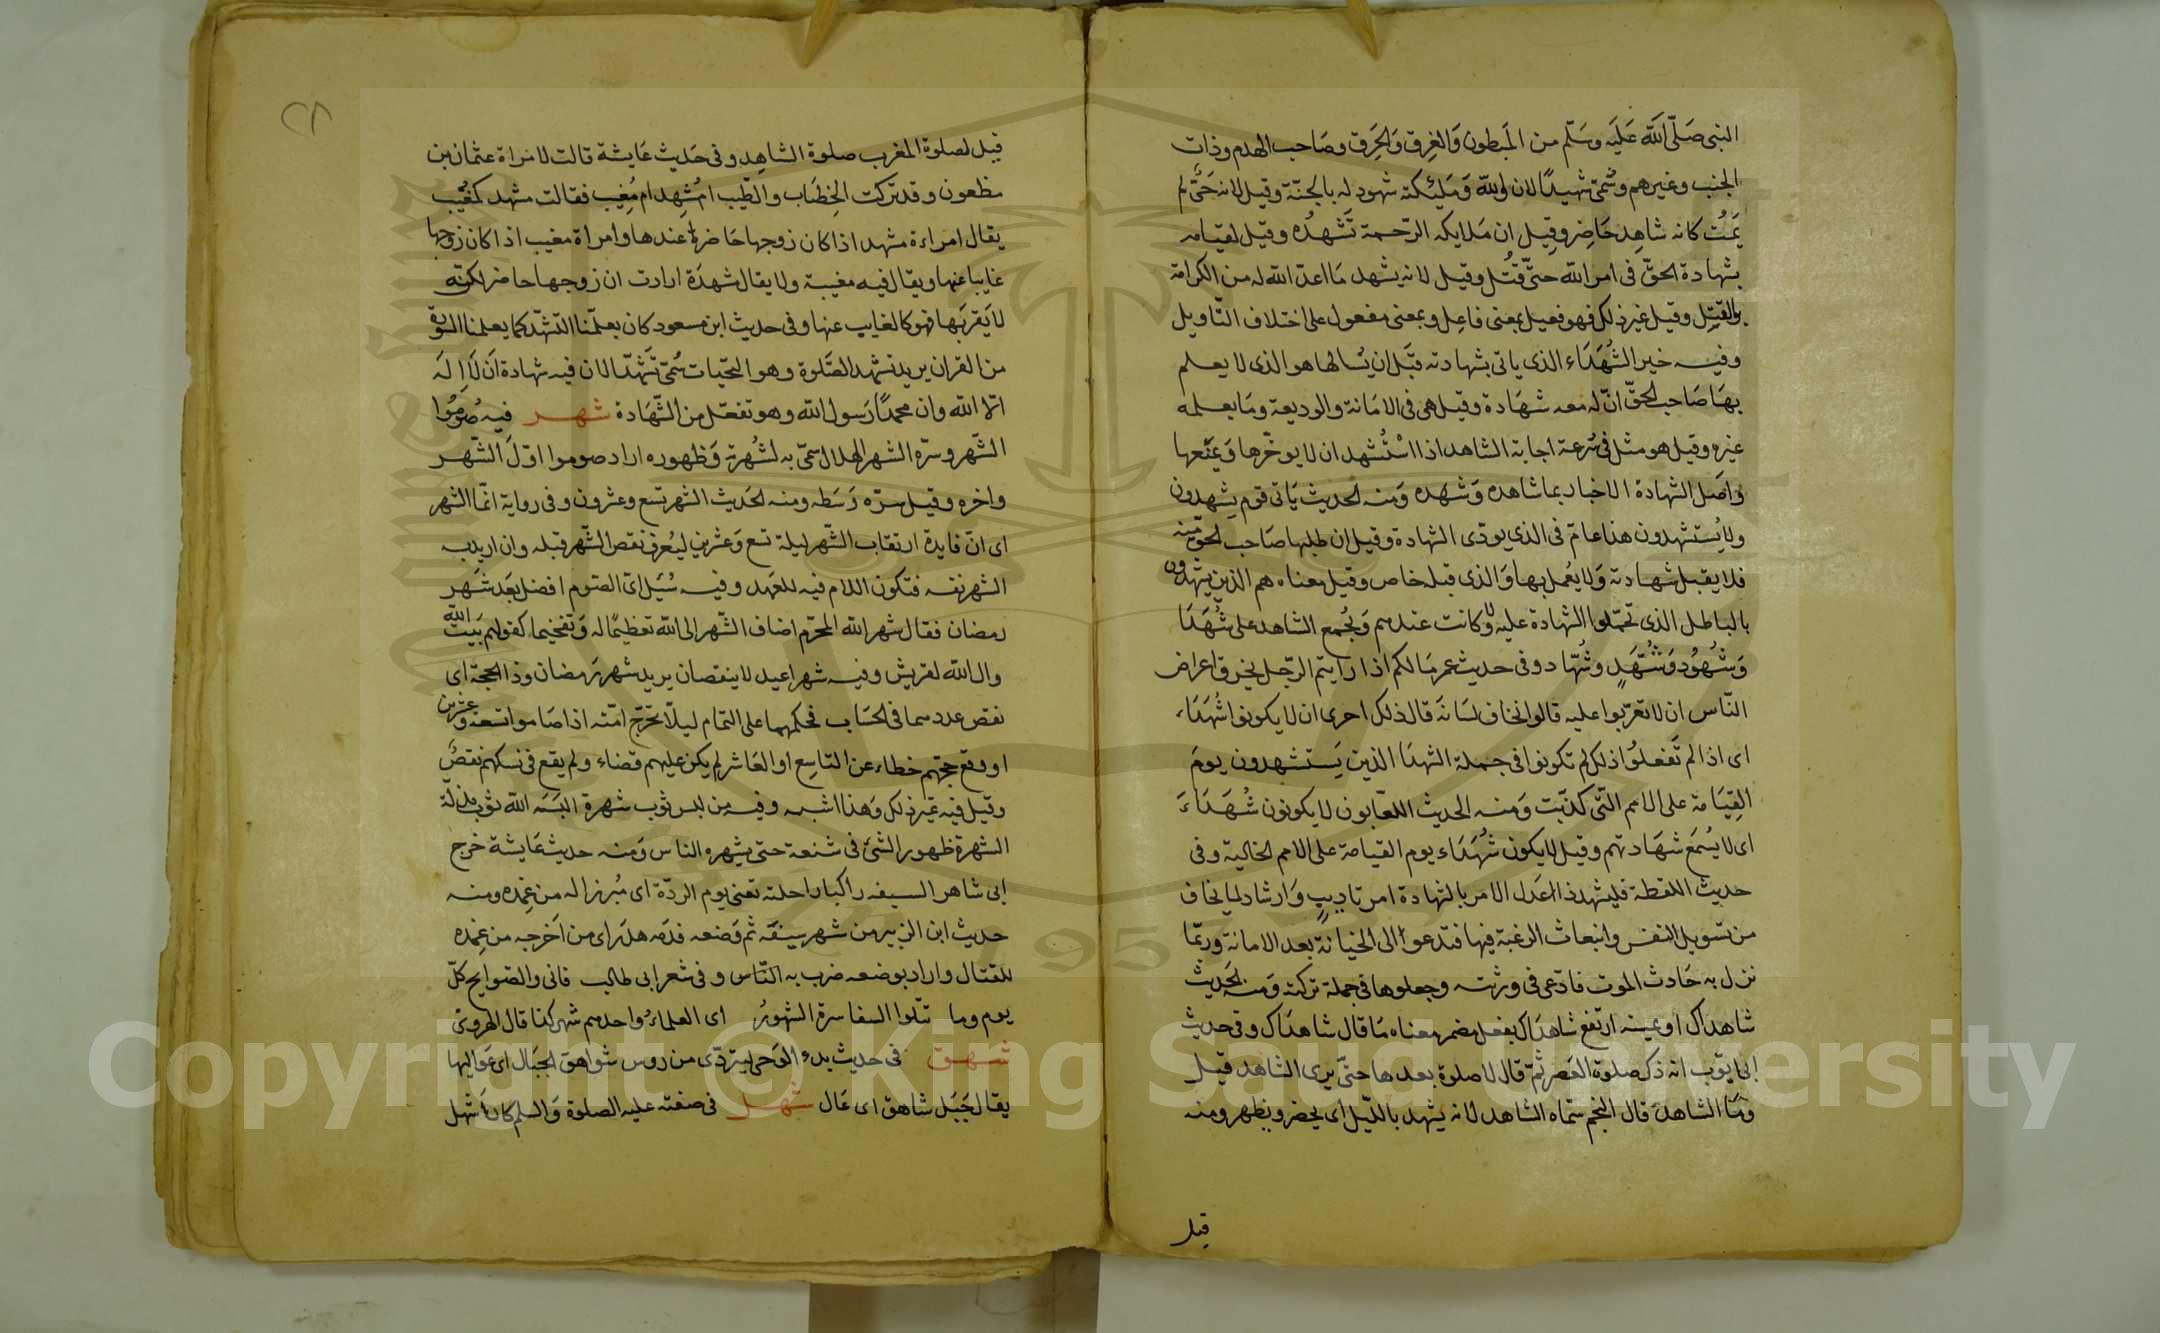 النبى صَلّى اللّه عَلَيه وسَلّم من المَبطون وَالغِرق وَالحَرِق وصَاحب الهدم وذات
الجنب وغيرهم وسُمّى شهيدًا لان اللّه وَمَلئكته شهود له بالجنّة وقيل لانه حَىّ لم
يَمُت كانه شاهِد حَاضِر وقِيل ان مَلايكه الرّحمة تَشهدُه وقيل لقيامه
بشهادة الحقّ فى امر اللّه حتّى قُتل وقيل لانه يشهد مَا اعدّ اللّه له من الكرامة
بالقتل وقيل غير ذلك فهو فعيل بمعنى فاعِل وبمعنى مفعول على اختلاف التّاويل
وفيه خير الشُهَدَاء الذى ياتى بشهادته قبَل ان يُسالها هو الذى لا يعلم
بهَا صَاحب الحقّ انّ له معه شهَادة وقيل هى فى الامَانة والوديعة ومَا يعلمه
غيره وقيل هو مثل فى سُرعة اجابة الشاهد اذا استُشهد ان لا يوخّرها وَيمنَعها
وَاصَل الشهادة الاخبار بما شاهده وَشهده وَمنه الحديث يَاتى قوم يشهدون
ولا يُستشهدون هذا عامّ فى الذى يودّى الشهادة وقيل ان طلبها صَاحب الحقّ منه
فلا يقبل شهادته وَلا يعُمل بها وَالذى قبله خاص وقيل معناه هم الذين يشهدون
بالباطل الذى تحمّلوا الشهادة عليه ولا كانت عندهم وَيُجمع الشاهد على شُهَدَا
وَشُهوُد وَشُهَّدٍ وشُهّاد وفى حديث عمر مَا لكم اذا رايتم الرّجل يخرق اعراض
النّاس ان لا تعرّبوا عليه قالوا نخاف لسَانه قال ذلك احرى ان لا يكونوا شُهَدَاء
اى اذا لم تَفعلوُا ذلك لم تكونوا فى جملة الشهدَا الذين يَستشهدون يومَ
القِيَامة على الامم الّتى كذّبت وَمنه الحديث اللعّانون لا يكونون شُهَدَاءَ
اى لا يُسمَع شهَادتهم وقيل لا يكون شُهَدَاء يوم القيامة على الامم الخالية وفى
حديث اللقطة فليشهد ذا اعَدل الامر بالشهادة امر تاديبٍ وَارشاد لما يخاف
من تسويل النفس وانبعاث الرغبة فيها فتدعوا الى الخيانة بعد الامانة وربّما
نزل به حَادث الموت فادّعى فى ورثته وجعلوها فى جملة تركته وَمنه الحَديث
شاهداك او يمينه ارتفع شاهدَاك بفعل مضمر معناه مَا قال شاهدَاك وفى حديث
ابى ايوّب انه ذكر صلوة العَصر ثمّ قال لا صلوة بعدها حتّى يرى الشاهد قيل
وَمَا الشاهد قال النجم سمّاه الشاهد لانه يشهد بالليّل اى يحضر ويظهر ومنه
قيل
قيل لصلوة المغرب صلوة الشاهِد وفى حَديث عَايشة قالت لامَراة عثمان بن
مظعون وقد تركت الخِضَاب والطّيب امُشِهد ام مُغِيب فقالت مشهد كمغُيب
يقال امراءة مشهد اذا كان زوجها حَاضرا عندها وامراة مغيب اذا كان زوجها
غايبا عنها ويقال فيه مغيبة ولا يقال مشهدَة ارادت ان زوجها حاضر لكنّه
لا يَقربَها فهو كالغايب عنها وفى حديث ابن مسعود كان يعلّمنا التشّهد كما يعلمنا السّورة
من القران يريد تشهد الصَّلوة وهو التحيّات سُمّى تَشهّدا لان فيه شهادة اَن لَا اِلَه
الّا اللّه وان محمدًا رَسول اللّه وهو تفعّل من الشّهَادة شهر فيه صُومُوا
الشّهر وسرّه الشهر الهلال سمّى به لشُهرته وَظهوره اراد صوموا اوّلَ الشّهر
واخره وقيل سرّه وَسَطه ومنه الحَديث الشهر تسع وعشرون وفى رواية انمّا الشهر
اى انّ فايدة ارتقاب الشّهر ليلة تسع وَعشرين ليُعرف نقص الشّهر قبله وان اريد به
الشهر نفسه فتكون اللام فيه للعَهد وفيه سُيَل اىّ الصّوم افضل بعَد شَهر
رمضان فقال شهر اللّه المحرّم اضاف الشّهر الى اللّه تعظيمًا له وَتفخيما كقولهم بَيت اللّه
وال اللّه لقريش وفيه شهرا عيد لا ينقصان يريد شهر رَمضان وذا الحجّة اى
نقص عددهما فى الحسَاب فحكمهما على التمام ليلّا تحَرّج امّته اذا صَاموا تسعة وعشرين
او وقع حجّهم خطاء عن التاسِع او العَاشر لم يكن عليهم قضاء ولم يقع فى نسكهم نقصٌ
وقيل فيه غَير ذلك وَهذا اشبه وفيه من لبس ثوب شهرة البَسَه اللّه ثوب مذلّة
الشهرة ظهور الشىَء فى شنعة حتى يشهره الناس وَمنه حديث عَايشة خرج
ابى شاهر السيفه راكبا راحلته تعنى يوم الردّة اى مُبرزا له من غِمده ومنه
حديث ابن الزبير من شهر سيَفَه ثم وَضعه فدَمه هدَر اى من اَخرجه من غِمِده
للقتال واراد بوضعه ضرب به النّاس وفى شعر ابى طالب فانى والضوابح كلّ
يوم وما تتلوا السفاسرة الشهورُ اى العلماءُ واحدهم شهر كذا قال الهروىّ
شهق فى حديث بدء الوَحى ليتردّى من روس شواهق الجبَال اى عَواليها
يقال جَبَل شاهق اى عَال شهل فى صفته عليه الصلوة وَالسلم كان اَشهل
Copyright © King Saud University